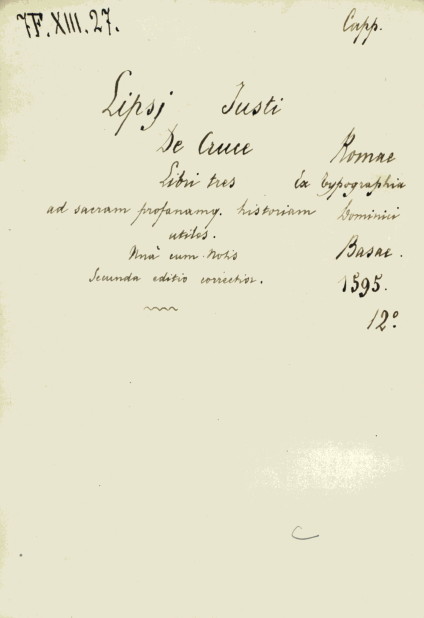 7F.XIII.27. Capp.
Lipsj Justi
De Cruce Romae
Libri tres Ex typographia
ad sacram profanamq. historiam Dominici
utiles. Basae.
Unà cum Notis
Secunda editio correctior. 1595.
12º
C